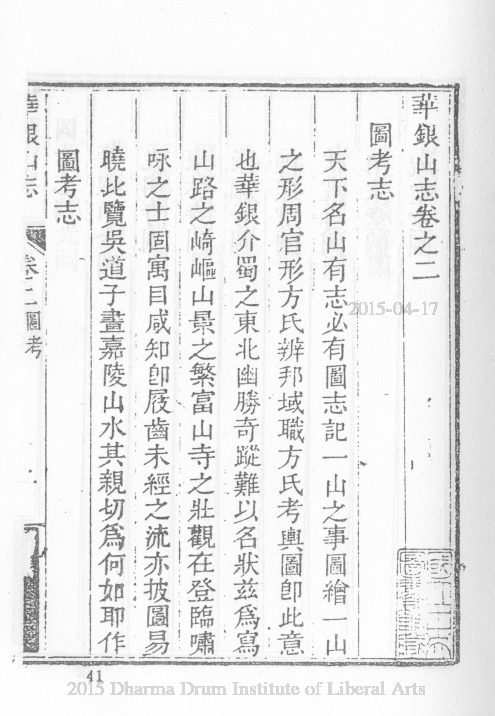 華銀山志卷之二
圖考志
天下名山有志必有圖志記一山之事圖繪一山
之形周官形方氏辨邦域職方氏考輿圖卽此意
也華銀介蜀之東北幽勝奇蹤難以名狀玆爲寫
山路之崎嶇山景之繁富山寺之壯觀在登臨嘯
咏之士固寓目咸知卽屐齒未經之流亦披圖易
曉此覽吳道子畫嘉陵山水其親切爲何如耶作
圖考志
華銀山志
卷二
圖考
2015-04-17
41
2015 Dharma Drum Institute of Liberal Arts